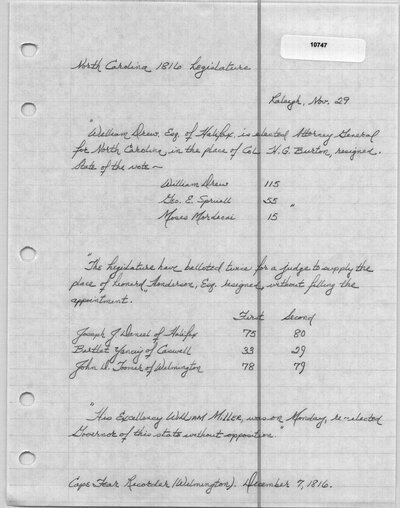 10747
North Carolina 1816 Legislature
Raleigh, Nov. 29
"William Drew, Esq. of Halifax, is elected Attorney General
for North Carolina in the place of Col H.G. Burton, resigned.
State of the vote ~
William Drew 115
Geo. E. Spruill 55 "
Moses Mordecai 15
"The Legislature have balloted twice for a judge to supply the
place of Leonard Henderson, Esq. resigned, without filling the
appointment.
First Second
Joseph J Daniel of Halifax 75 80
Bartlet Yancy of Caswell 33 29
John D. Toomer of Wilmington 78 79
"His Excellency William Miller, was on Monday, re-elected
Governor of this state without opposition."
Cape Fear Recorder (Wilmington). December 7, 1816.